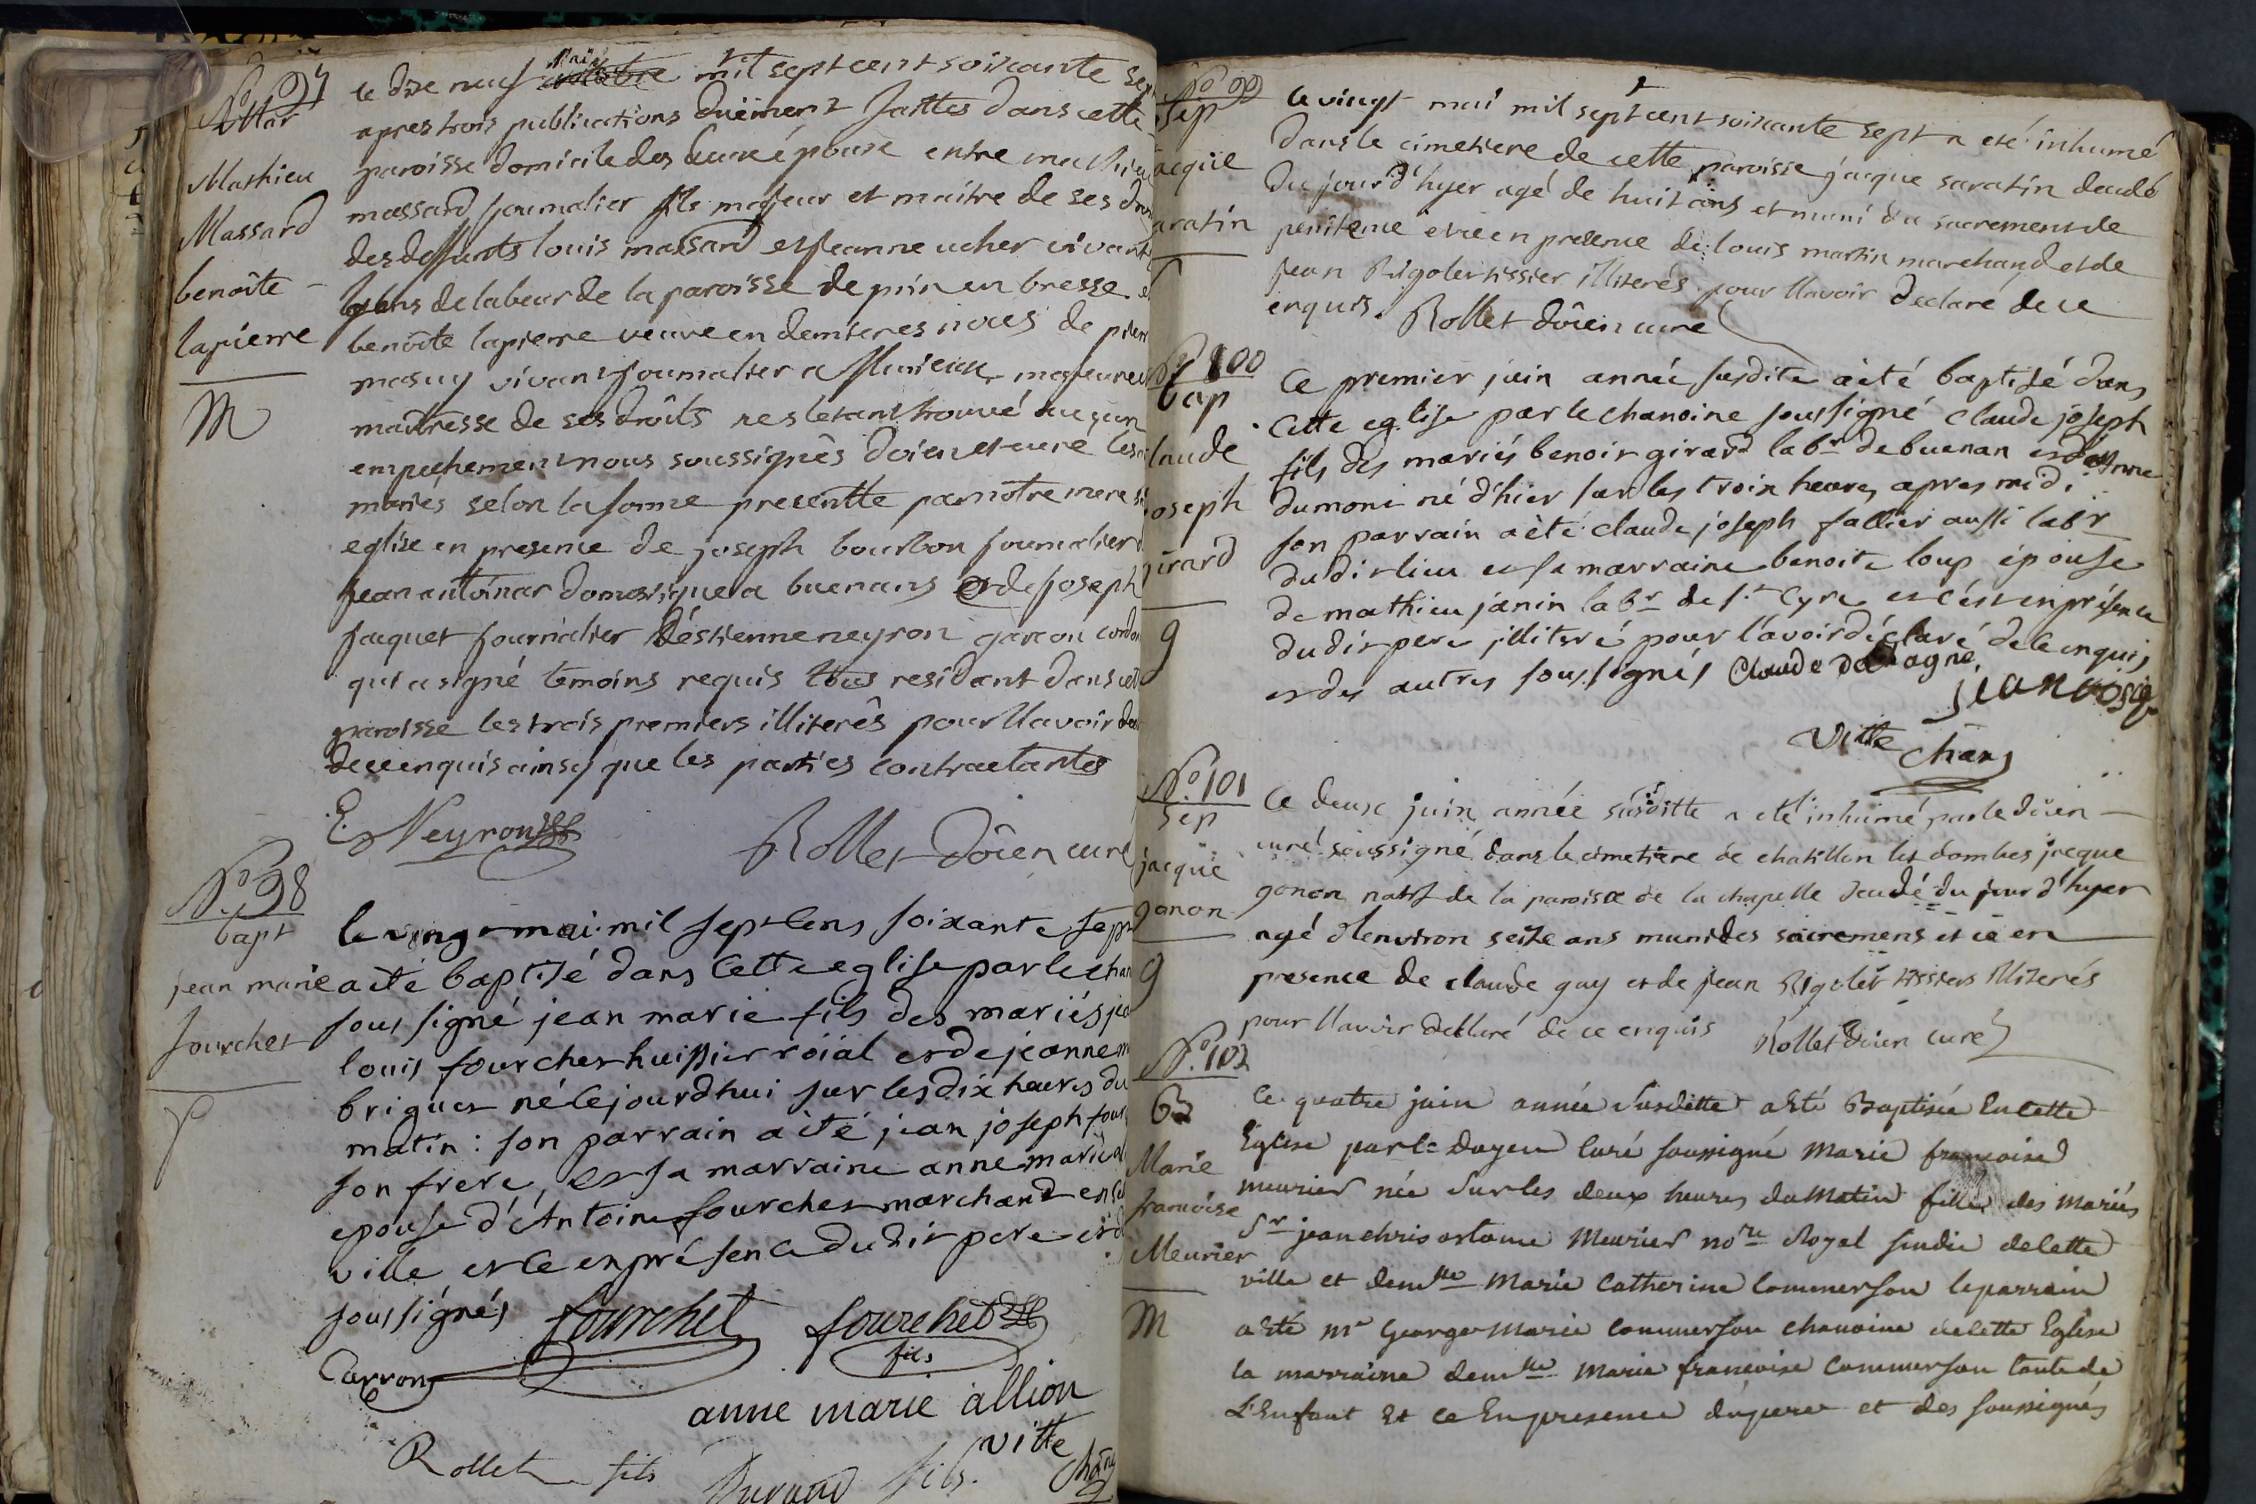 No 97
Mar
Mathieu
Massard
benoîte
lapierre
M
le dixe neuf mai mil sept cent soixante sep
apres trois publications duëment faittes dans cette
paroisse domicile des deux épouse entre mathieu
massard journalier fils majeur et maitre de ses droi
des deffunts louis massard et jeanne ucher vivants
gens de labeur de la paroisse de pirin en bresse et
benoîte lapierre veuve en dernieres noces de pierr
masuy vivant journalier a fleurieux majeure et
maitresse de ses droits nes letant trouvé aucun
empechement nous soussignês doien et curé les
mariés selon la forme presentte par notre mere s
eglise en presence de joseph bourbon journalier
jean antoinar domestique a buenans et de joseph
jacquet journalier d'éstienne neyron garcon cordon
qui a signé temoins requis tous residant dans cett
paroisse les trois premiers illiterês pour llavoir de
de ce enquis ainsy que les parties contractantes
E. Neyron Rollet doien curé
No 98
bapt
jean marie
fourchet
le vingt mai mil sept cens soixante sept
a été baptisé dans cette eglise par le chan
sous signé jean marie fils des mariés jea
louis fourchet huissier roial et de jeanne m
briguet né cejourdhui sur les dix heures du
matin : son parrain a été jean joseph four
son frere, et sa marraine anne marie al
epouse d'Antoine fourchet marchand en ce
ville et ce en présence du dit pere et d
soussignés fourchet fourchet
fils
Carron
anne marie allion
vitte
Rollet fils Durand fils. chan
No 99
sep
acque
aratin
le vingt mai mil sept cent soixante sept a eté inhumé
dans le cimetiere de cette paroisse jacque saratin decedé
du jour d'hyer agé de huit ans et muni du sacrement de
penitence et ce en presence de louis martin marchand et de
jean Rigolet tissier illiterés pour llavoir declaré de ce
enquis. Rollet doien curé
No 100
bap
laude
oseph
girard
g
Ce premier juin année susdite a été baptisé dans
cette eglise par le chanoine soussigné claude joseph
fils des mariés benoit girard labr de buenan et d'Anne
dumont né d'hier sur les trois heures apres midi.
son parrain a été claude joseph fallier aussi labr
du dit lieu et sa marraine benoite loup épouse
de mathieu janin labr de st Cyre et c'est en présence
du dit pere illiteré pour l'avoir déclaré de ce enquis
et des autres soussignés Claude
vitte chan
No 101
sep
jacque
gonon
g
Ce deuxe juin année susditte a eté inhumé par le doien
curé soussigné dans le cimetiere de chatillon les dombes jacque
gonon natif de la paroisse de la chapelle decedé du jour d'hyer
agé d'environ seize ans muni des sacremens et ce en
presence de claude guy et de jean Rigolet tissiers illiterés
pour llavoir declaré de ce enquis Rollet doien curé
No 102
Marie
francoise
Meurier
M
Ce quatre juin année susditte a Eté Baptisée En cette
Eglise par le doyen Curé soussigné Marie francoise
meurier née sur les deux heures du Matin fille des Mariés
Sr jean chrisostome Meurier nore Royal sindic de cette
ville et demlle Marie Catherine Commerson le parrain
a Eté Mr George Marie Commerson chanoine de cette Eglise
la marraine demlle Marie francoise Commerson tante de
L'Enfant Et ce En presence du pere et des soussignés